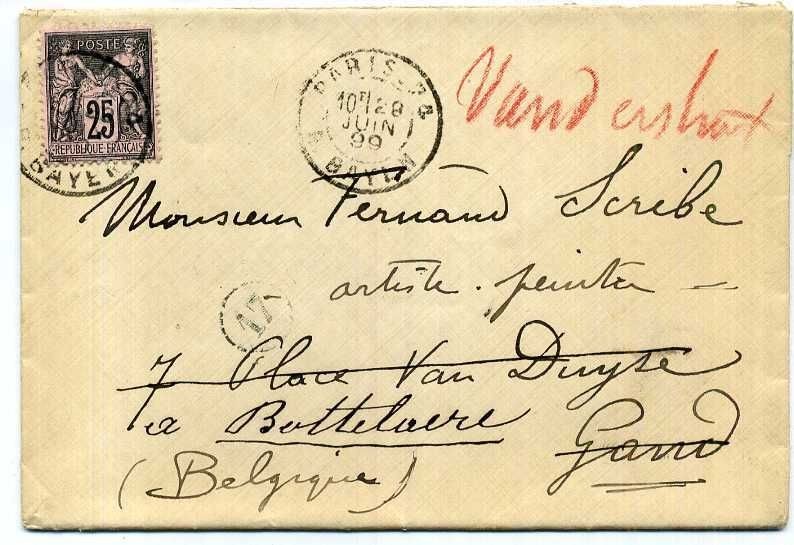 POSTE
25
REPUBLIQUE FRANCAISE
BAYEN
PARIS
10E 28
JUIN
99
R. BAYEN
Monsieur Fernand Scribe
artiste. peintre —
17
7 Place Van Duyse
à Bottelaere Gand
(Belgique)